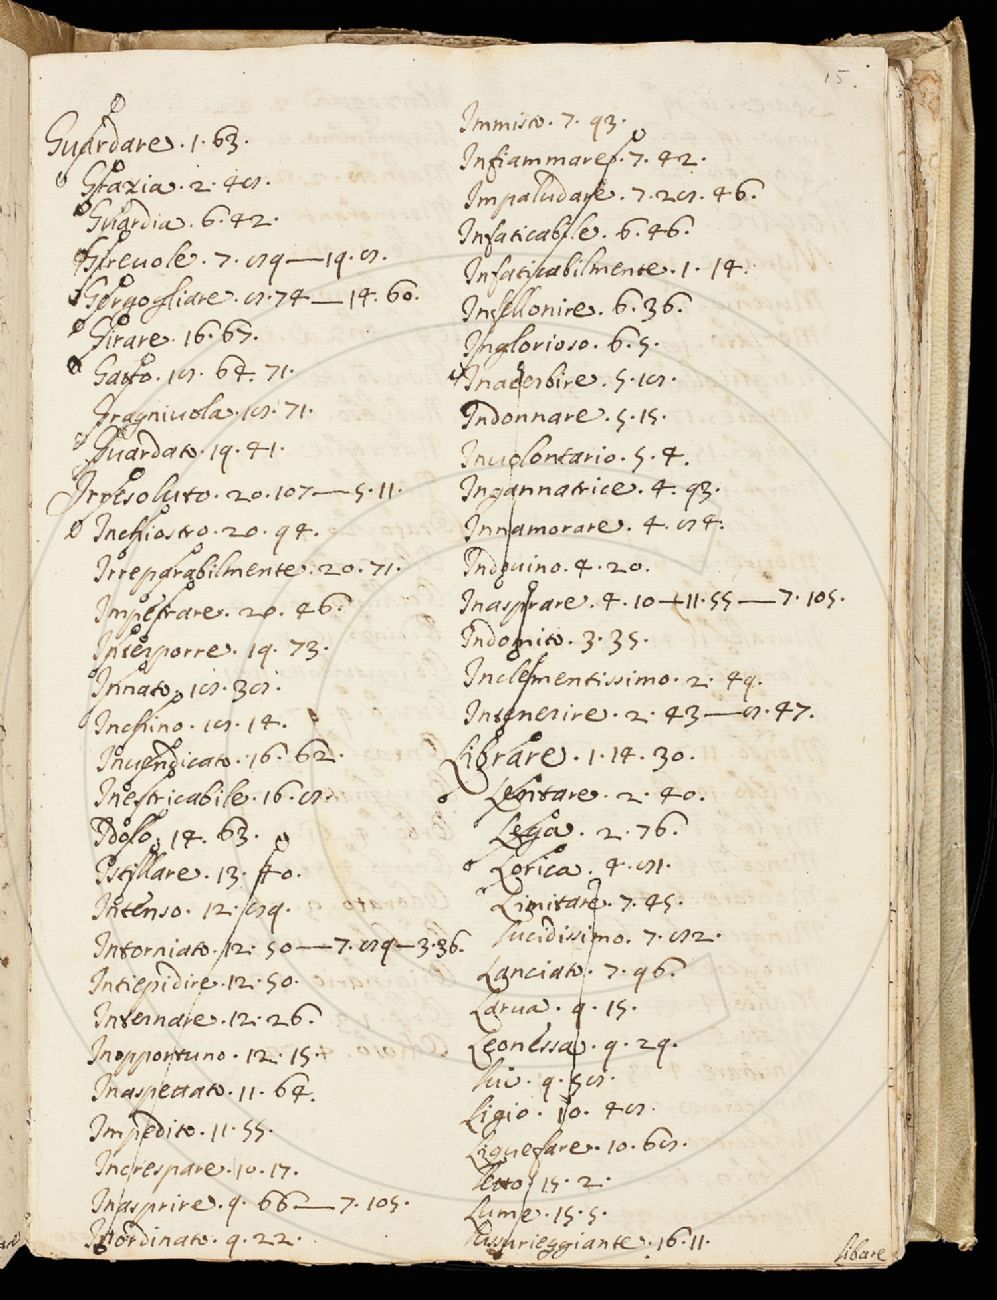 15
Guardare. 1. 63.
Guardia. 6. 42.
Gorgogliare. 74 — 14. 60.
Girare. 16. 67.
Gatto. 64. 71.
71.
Guardato. 19. 41.
Irresoluto. 20. 107 — 5. 11.
Inchiostro. 20. 94.
Irreparabilmente. 20. 71.
Impetrare. 20. 46.
Interporre. 19. 73.
Innato.
Inchino. 14.
Invendicato. 16. 62.
Inestricabile. 16.
Idolo. 14. 63.
Istillare. 13. 40.
Intenso. 12.
Intorniato. 12. 50 — 7. — 3. 36.
Intiepidire. 12. 50.
Internare. 12. 26.
Inopportuno. 12. 15.
Inaspettato. 11. 64.
Impedito. 11. 55.
Increspare. 10. 17.
Inasprire. 9. 66 — 7. 105.
Inordinato. 9. 22.
Immisto. 7. 93.
Infiammare. 7. 42.
Impaludare. 7. 46.
Infaticabile. 6. 46.
Infaticabilmente. 1. 14.
Infellonire. 6. 36.
Inglorioso. 6. 5.
Inacerbire. 5.
Indonnare. 5. 15.
Involontario. 5. 4.
Ingannatrice. 4. 93.
Innamorare. 4.
Indovino. 4. 20.
Inasprare. 4. 10 — 11. 55 — 7. 105.
Indomito. 3. 35.
Inclementissimo. 2. 49.
Intenerire. 2. 43 — 47.
Librare. 1. 14. 30.
Lentare. 2. 40.
Lega. 2. 76.
Lorica. 4.
Limitare. 7. 45.
Lucidissimo. 7.
Lanciato. 7. 96.
Larua. 9. 15.
Leonessa. 9. 29.
Lui. 9.
Ligio. 10.
Liquefare. 10.
Letto. 15. 2.
Lume. 15. 5.
Lussureggiante. 16. 11.
libare